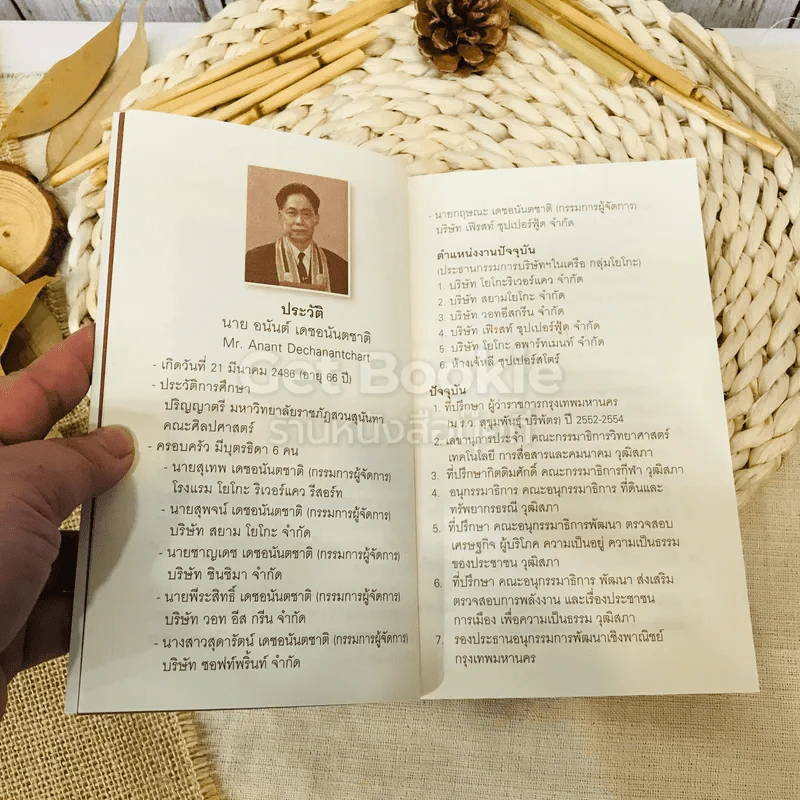 ประวัติ
นาย อนันต์ เดชอนันตชาติ
Mr. Anant Dechanantchart
- เกิดวันที่ 21 มีนาคม 2486 (อายุ 66 ปี)
- ประวัติการศึกษา
ปริญญาตรี มหาวิทยาลัยราชภัฏสวนสุนันทา
คณะศิลปศาสตร์
- ครอบครัว มีบุตรธิดา 6 คน
- นายสุเทพ เดชอนันตชาติ (กรรมการผู้จัดการ)
โรงแรม โยโกะ ริเวอร์แคว รีสอร์ท
- นายสุพจน์ เดชอนันตชาติ (กรรมการผู้จัดการ)
บริษัท สยาม โยโกะ จำกัด
- นายชาญเดช เดชอนันตชาติ (กรรมการผู้จัดการ)
บริษัท ชินชิมา จำกัด
- นายพีระสิทธิ์ เดชอนันตชาติ (กรรมการผู้จัดการ)
บริษัท วอท อีส กรีน จำกัด
- นางสาวสุดารัตน์ เดชอนันตชาติ (กรรมการผู้จัดการ)
บริษัท ซอฟท์พริ้นท์ จำกัด
- นายกฤษณะ เดชอนันตชาติ (กรรมการผู้จัดการ)
บริษัท เฟิรสท์ ซุปเปอร์ฟู้ด จำกัด
ตำแหน่งงานปัจจุบัน
(ประธานกรรมการบริษัทฯในเครือ กลุ่มโยโกะ)
1. บริษัท โยโกะริเวอร์แคว จำกัด
2. บริษัท สยามโยโกะ จำกัด
3. บริษัท วอทอีสกรีน จำกัด
4. บริษัท เฟิรสท์ ซุปเปอร์ฟู้ด จำกัด
5. บริษัท โยโกะ อพาร์ทเมนท์ จำกัด
6. ห้างเจ้หลี ซุปเปอร์สโตร์
ปัจจุบัน
1. ที่ปรึกษา ผู้ว่าราชการกรุงเทพมหานคร
(ม.ร.ว. สุขุมพันธุ์ บริพัตร) ปี 2552-2554
2. เลขานุการประจำ คณะกรรมาธิการวิทยาศาสตร์
เทคโนโลยี การสื่อสารและคมนาคม วุฒิสภา
3. ที่ปรึกษากิตติมศักดิ์ คณะกรรมาธิการกีฬา วุฒิสภา
4. อนุกรรมาธิการ คณะอนุกรรมาธิการ ที่ดินและ
ทรัพยากรธรณี วุฒิสภา
5. ที่ปรึกษา คณะอนุกรรมาธิการพัฒนา ตรวจสอบ
เศรษฐกิจ ผู้บริโภค ความเป็นอยู่ ความเป็นธรรม
ของประชาชน วุฒิสภา
6. ที่ปรึกษา คณะอนุกรรมาธิการ พัฒนา ส่งเสริม
ตรวจสอบการพลังงาน และเรื่องประชาชน
การเมือง เพื่อความเป็นธรรม วุฒิสภา
7. รองประธานอนุกรรมการพัฒนาเชิงพาณิชย์
กรุงเทพมหานคร
Get Bookie